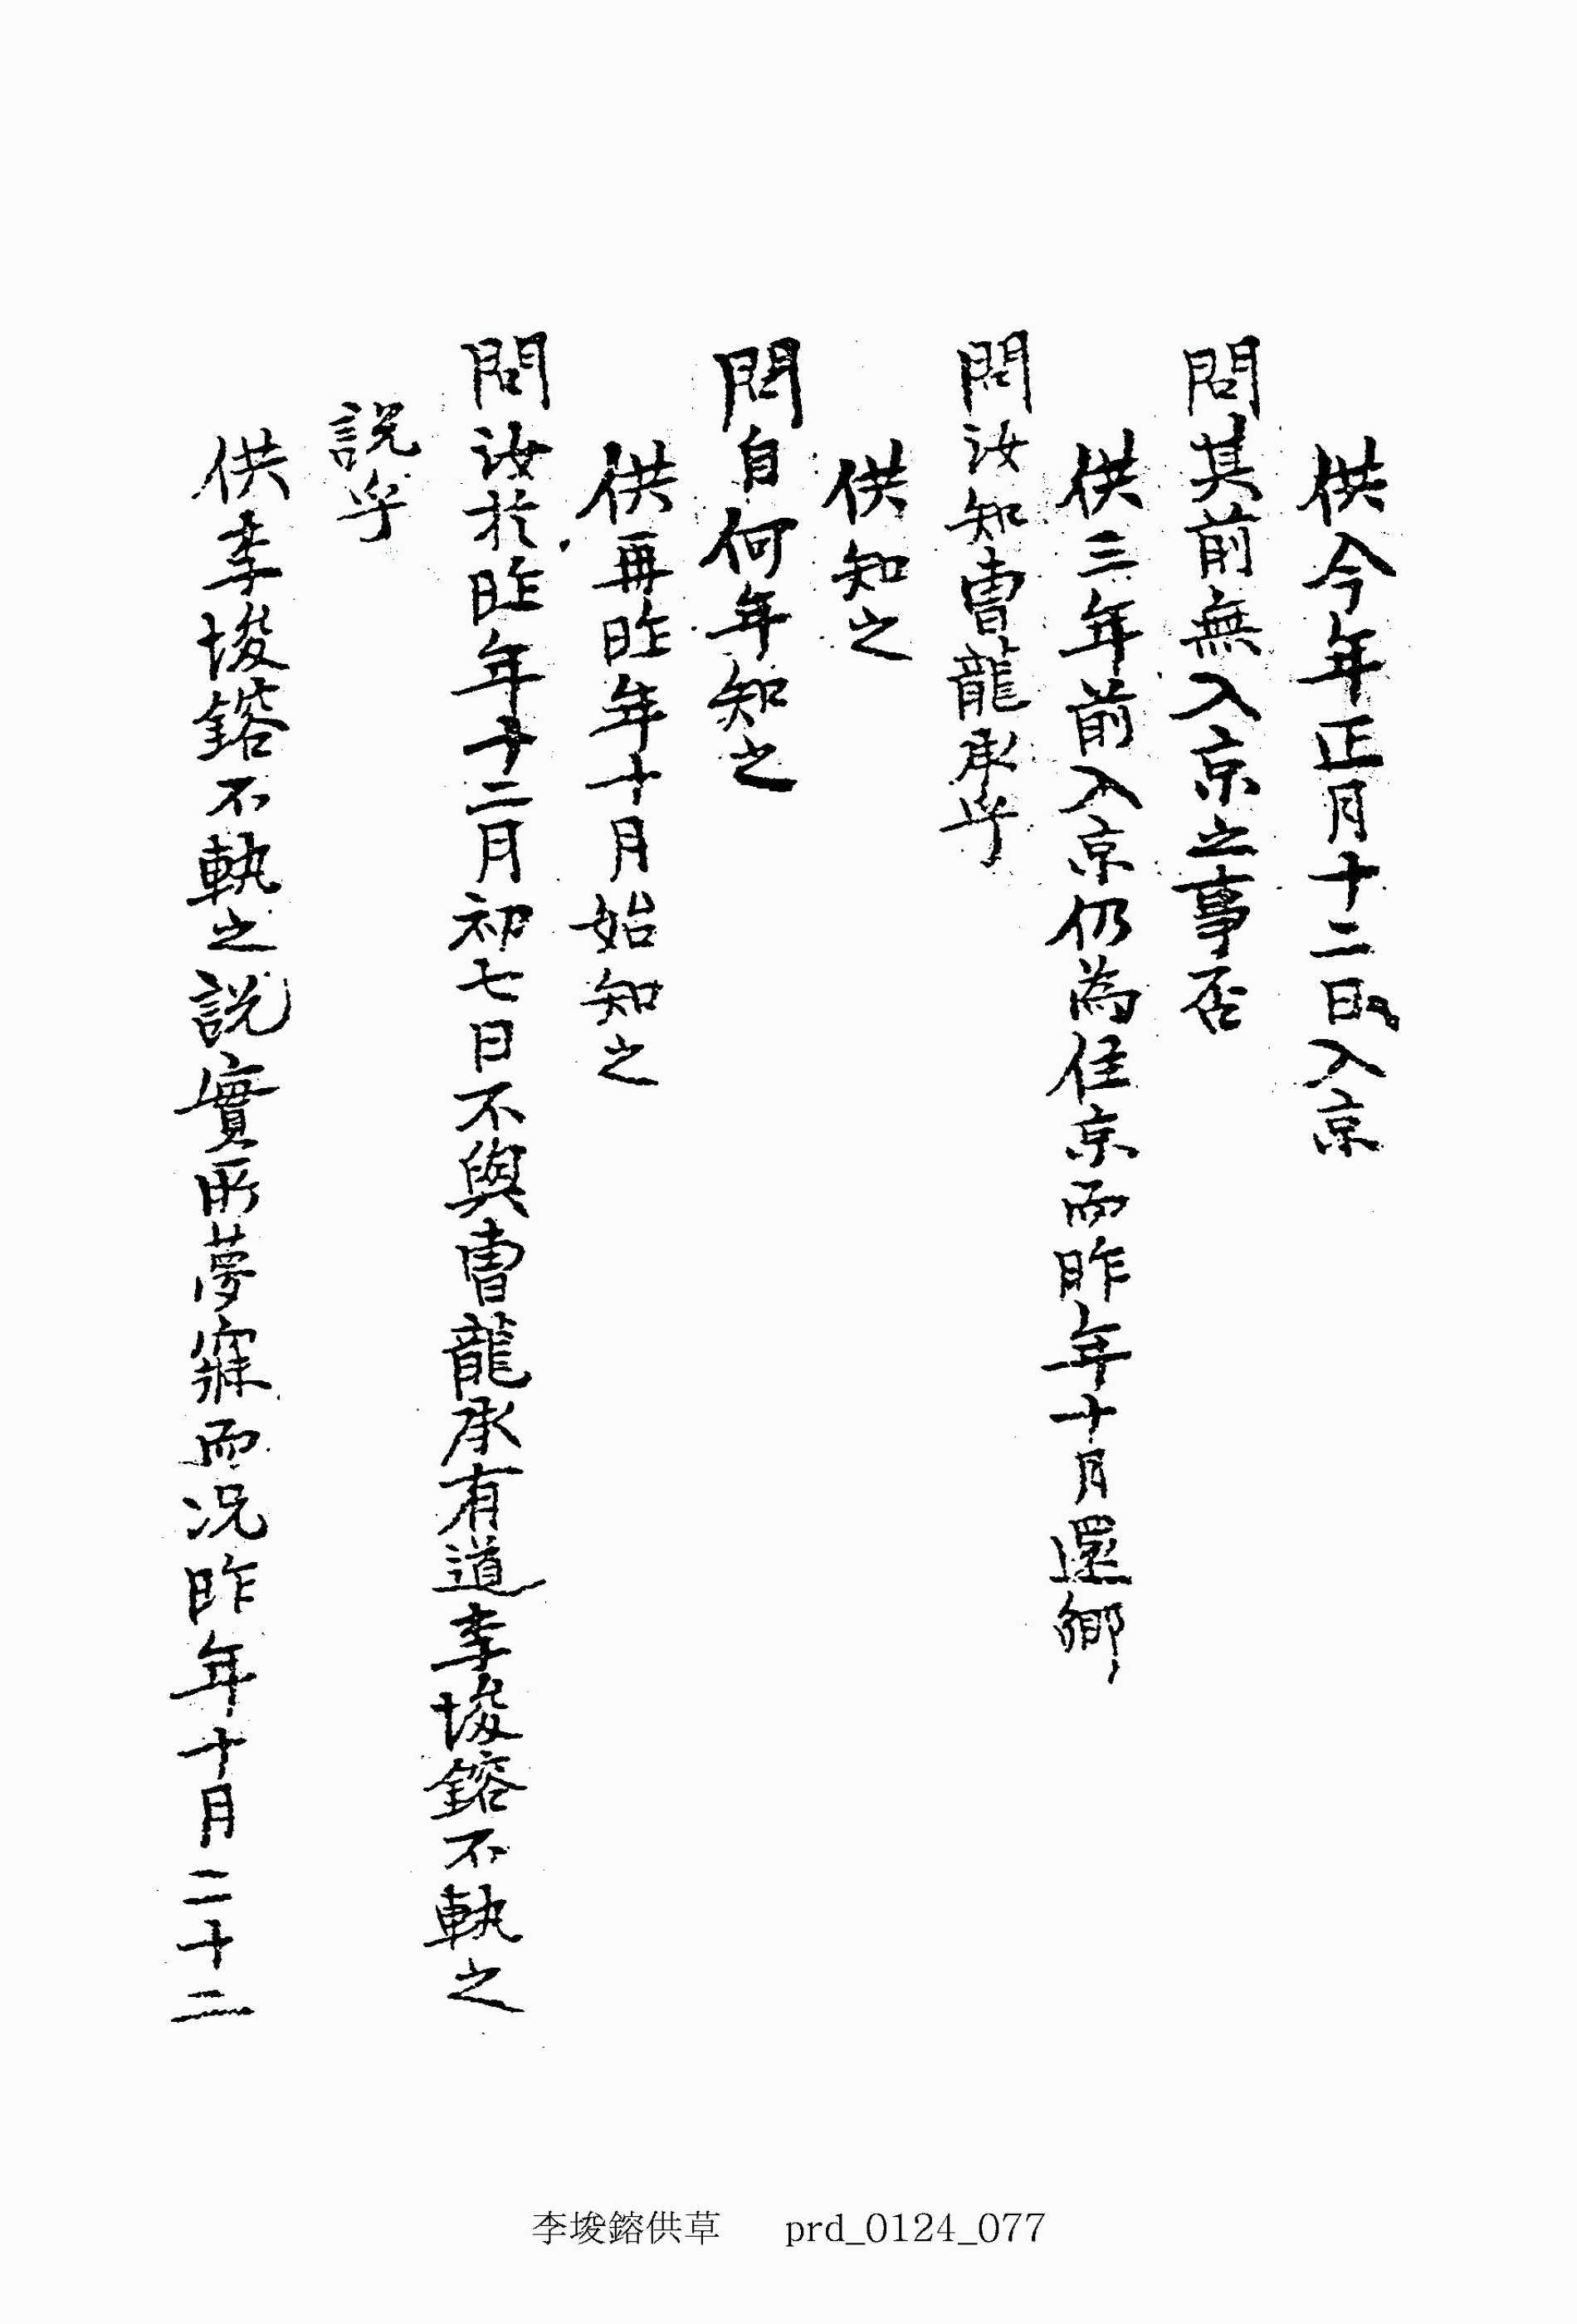 供今年正月十二日入京
問其前無入京之事否
供三年前入京仍為住京而昨年十月還鄉
問汝知曺龍承乎
供知之
問自何年知之
供再昨年十月始知之
問汝於昨年十二月初七日不與曺龍承有道李埈鎔不軌之
說乎
供李埈鎔不軌之說實所夢寐而况昨年十月二十二
李埈鎔供草 prd_0124_077